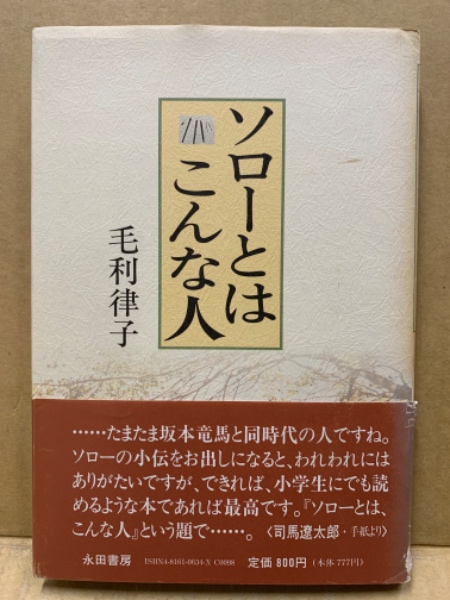 ソローとは
こんな人
毛利律子
……たまたま坂本竜馬と同時代の人ですね。
ソローの小伝をお出しになると、われわれには
ありがたいですが、できれば、小学生にでも読
めるような本であれば最高です。『ソローとは、
こんな人』という題で……。〈司馬遼太郎・手紙より〉
永田書房 ISBN4-8161-0634-X C0098 定価 800円（本体 777円）